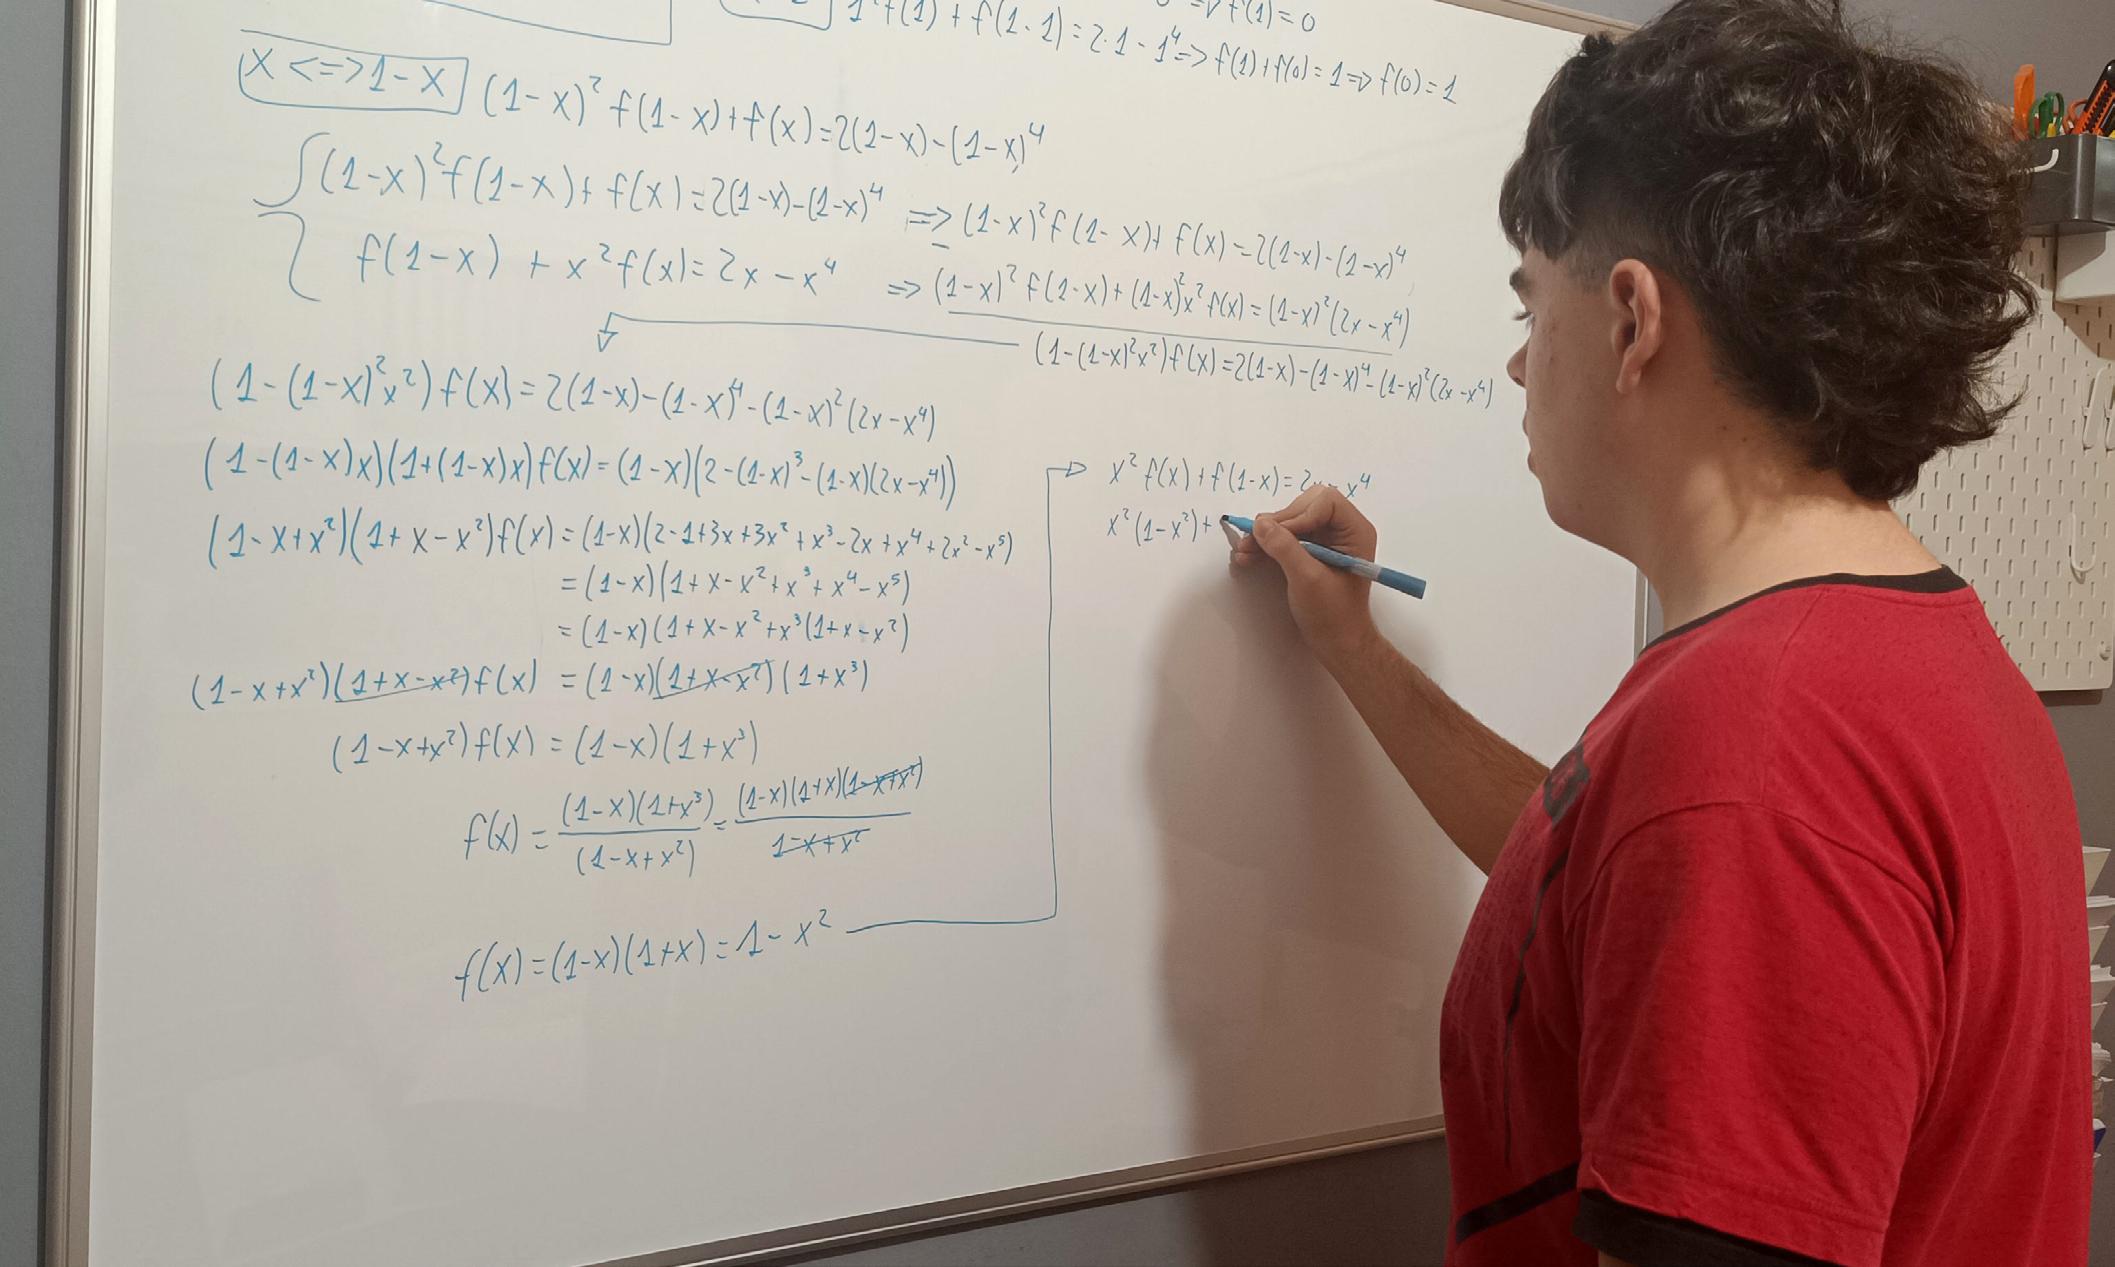 => f(1) = 0
1² f(1) + f(1-1) = 2·1 - 1⁴ => f(1) + f(0) = 1 => f(0) = 1
x <=> 1-x (1-x)² f(1-x) + f(x) = 2(1-x) - (1-x)⁴
(1-x)² f(1-x) + f(x) = 2(1-x) - (1-x)⁴ => (1-x)² f(1-x) + f(x) = 2(1-x) - (1-x)⁴
f(1-x) + x² f(x) = 2x - x⁴ => (1-x)² f(1-x) + (1-x)² x² f(x) = (1-x)² (2x - x⁴)
(1-(1-x)²x²) f(x) = 2(1-x) - (1-x)⁴ - (1-x)² (2x - x⁴)
(1-(1-x)²x²) f(x) = 2(1-x) - (1-x)⁴ - (1-x)² (2x - x⁴)
(1-(1-x)x)(1+(1-x)x) f(x) = (1-x)(2-(1-x)³-(1-x)(2x-x⁴))
(1-x+x²)(1+x-x²) f(x) = (1-x)(2-1+3x+3x²+x³-2x+x⁴+2x²-x⁵)
= (1-x)(1+x-x²+x³+x⁴-x⁵)
= (1-x)(1+x-x²+x³(1+x-x²)
(1-x+x²)(1+x-x²) f(x) = (1-x)(1+x-x²)(1+x³)
(1-x+x²) f(x) = (1-x)(1+x³)
f(x) = (1-x)(1+x³)/(1-x+x²) = (1-x)(1+x)(1-x+x²)/1-x+x²
f(x) = (1-x)(1+x) = 1-x²
x² f(x) + f(1-x) = 2x - x⁴
x² (1-x²) +